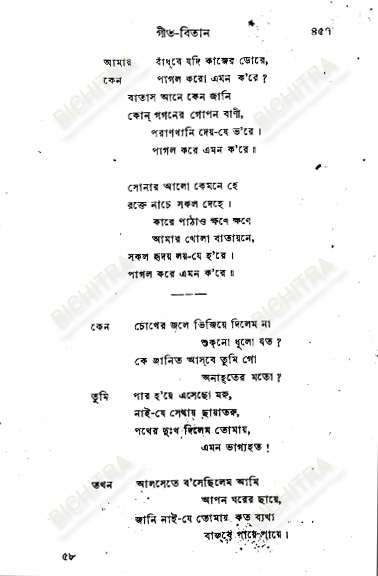 গীত-বিতান ৪৫৭
আমার বাঁধবে যদি কাজের ডোরে,
কেন পাগল করো এমন ক'রে?
বাতাস আনে কেন জানি
কোন্ গগনের গোপন বাণী,
পরাণখানি দেয়-যে ভ'রে।
পাগল করে এমন ক'রে॥
সোনার আলো কেমনে হে
রক্তে নাচে সকল দেহে।
কারে পাঠাও ক্ষণে ক্ষণে
আমার খোলা বাতায়নে,
সকল হৃদয় লয়-যে হ'রে।
পাগল করে এমন ক'রে॥
কেন চোখের জলে ভিজিয়ে দিলেম না
শুক্‌নো ধূলো যত?
কে জানিত আস্‌বে তুমি গো
অনাহূতের মতো?
তুমি পার হ'য়ে এসেছো মরু,
নাই-যে সেথায় ছায়াতরু,
পথের দুঃখ দিলেম তোমায়,
এমন ভাগ্যহত!
তখন আলসেতে ব'সেছিলেম আমি
আপন ঘরের ছায়ে,
জানি নাই-যে তোমায় কত ব্যথা
বাজ্‌বে পায়ে-পায়ে।
৫৮
BICHITRA
BICHITRA
BICHITRA
BICHITRA
BICHITRA
BICHITRA